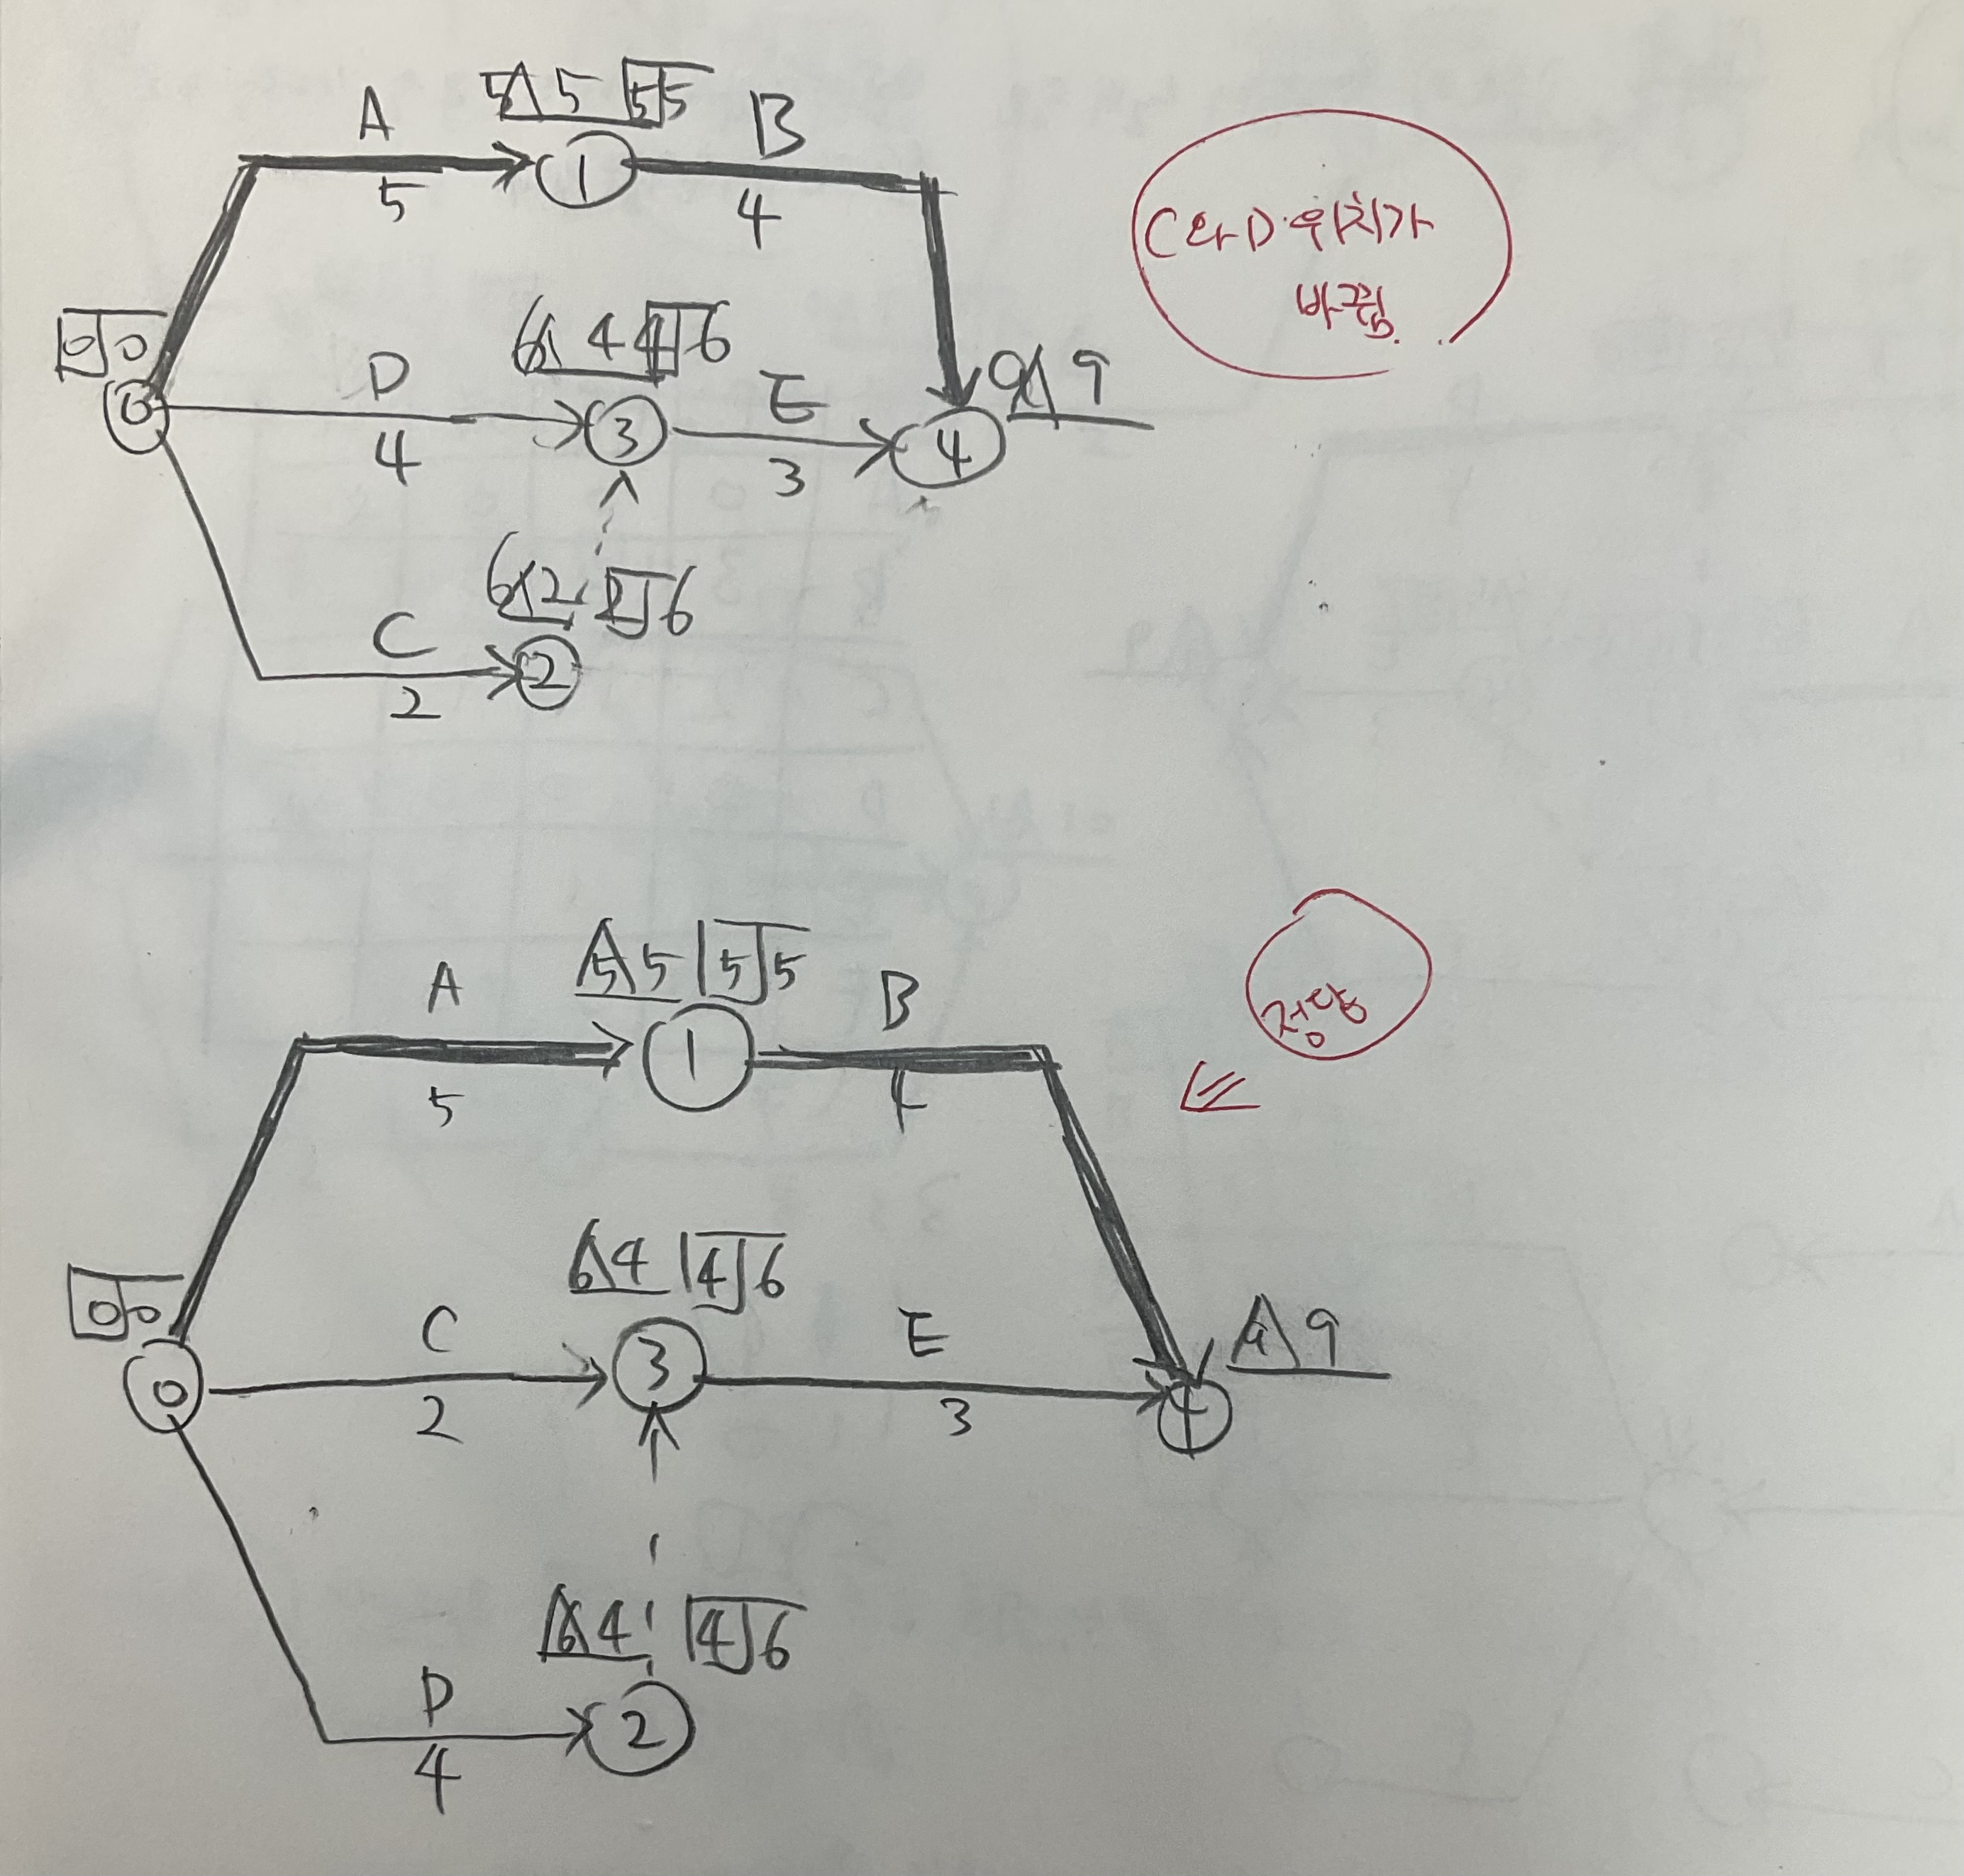 A
5 5 5 5
B
1
5
4
C와 D 위치가
바뀜.
0 0
6 4 4 6
D
E
9 9
0
3
4
4
3
6 2 2 6
C
2
2
A
5 5 5 5
B
정답
1
5
4
6 4 4 6
0 0
C
E
9 9
3
0
4
2
3
6 4 4 6
D
2
4